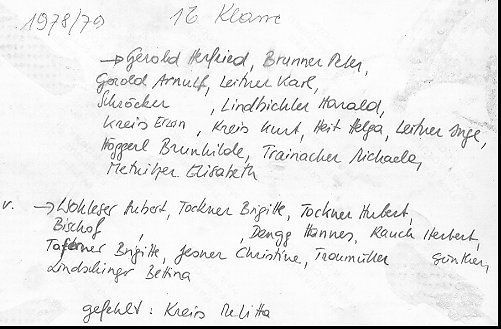 1978/79 1b Klasse
→ Gerold Herfried, Brunner Peter,
Gerold Arnulf, Leitner Karl,
Schröcker , Lindbichler Harald,
Kreis Erwin, Kreis Kurt, Heit Helga, Leitner Inge,
Höggerl Brunhilde, Trainacher Michaela,
Metnitzer Elisabeth
v. → Wohleser Hubert, Tockner Brigitte, Tockner Hubert,
Bischof , , Dengg Hannes, Rauch Herbert,
Taferner Brigitte, Jesner Christine, Traumüller Günther,
Lindschinger Bettina
gefehlt: Kreis Melitta